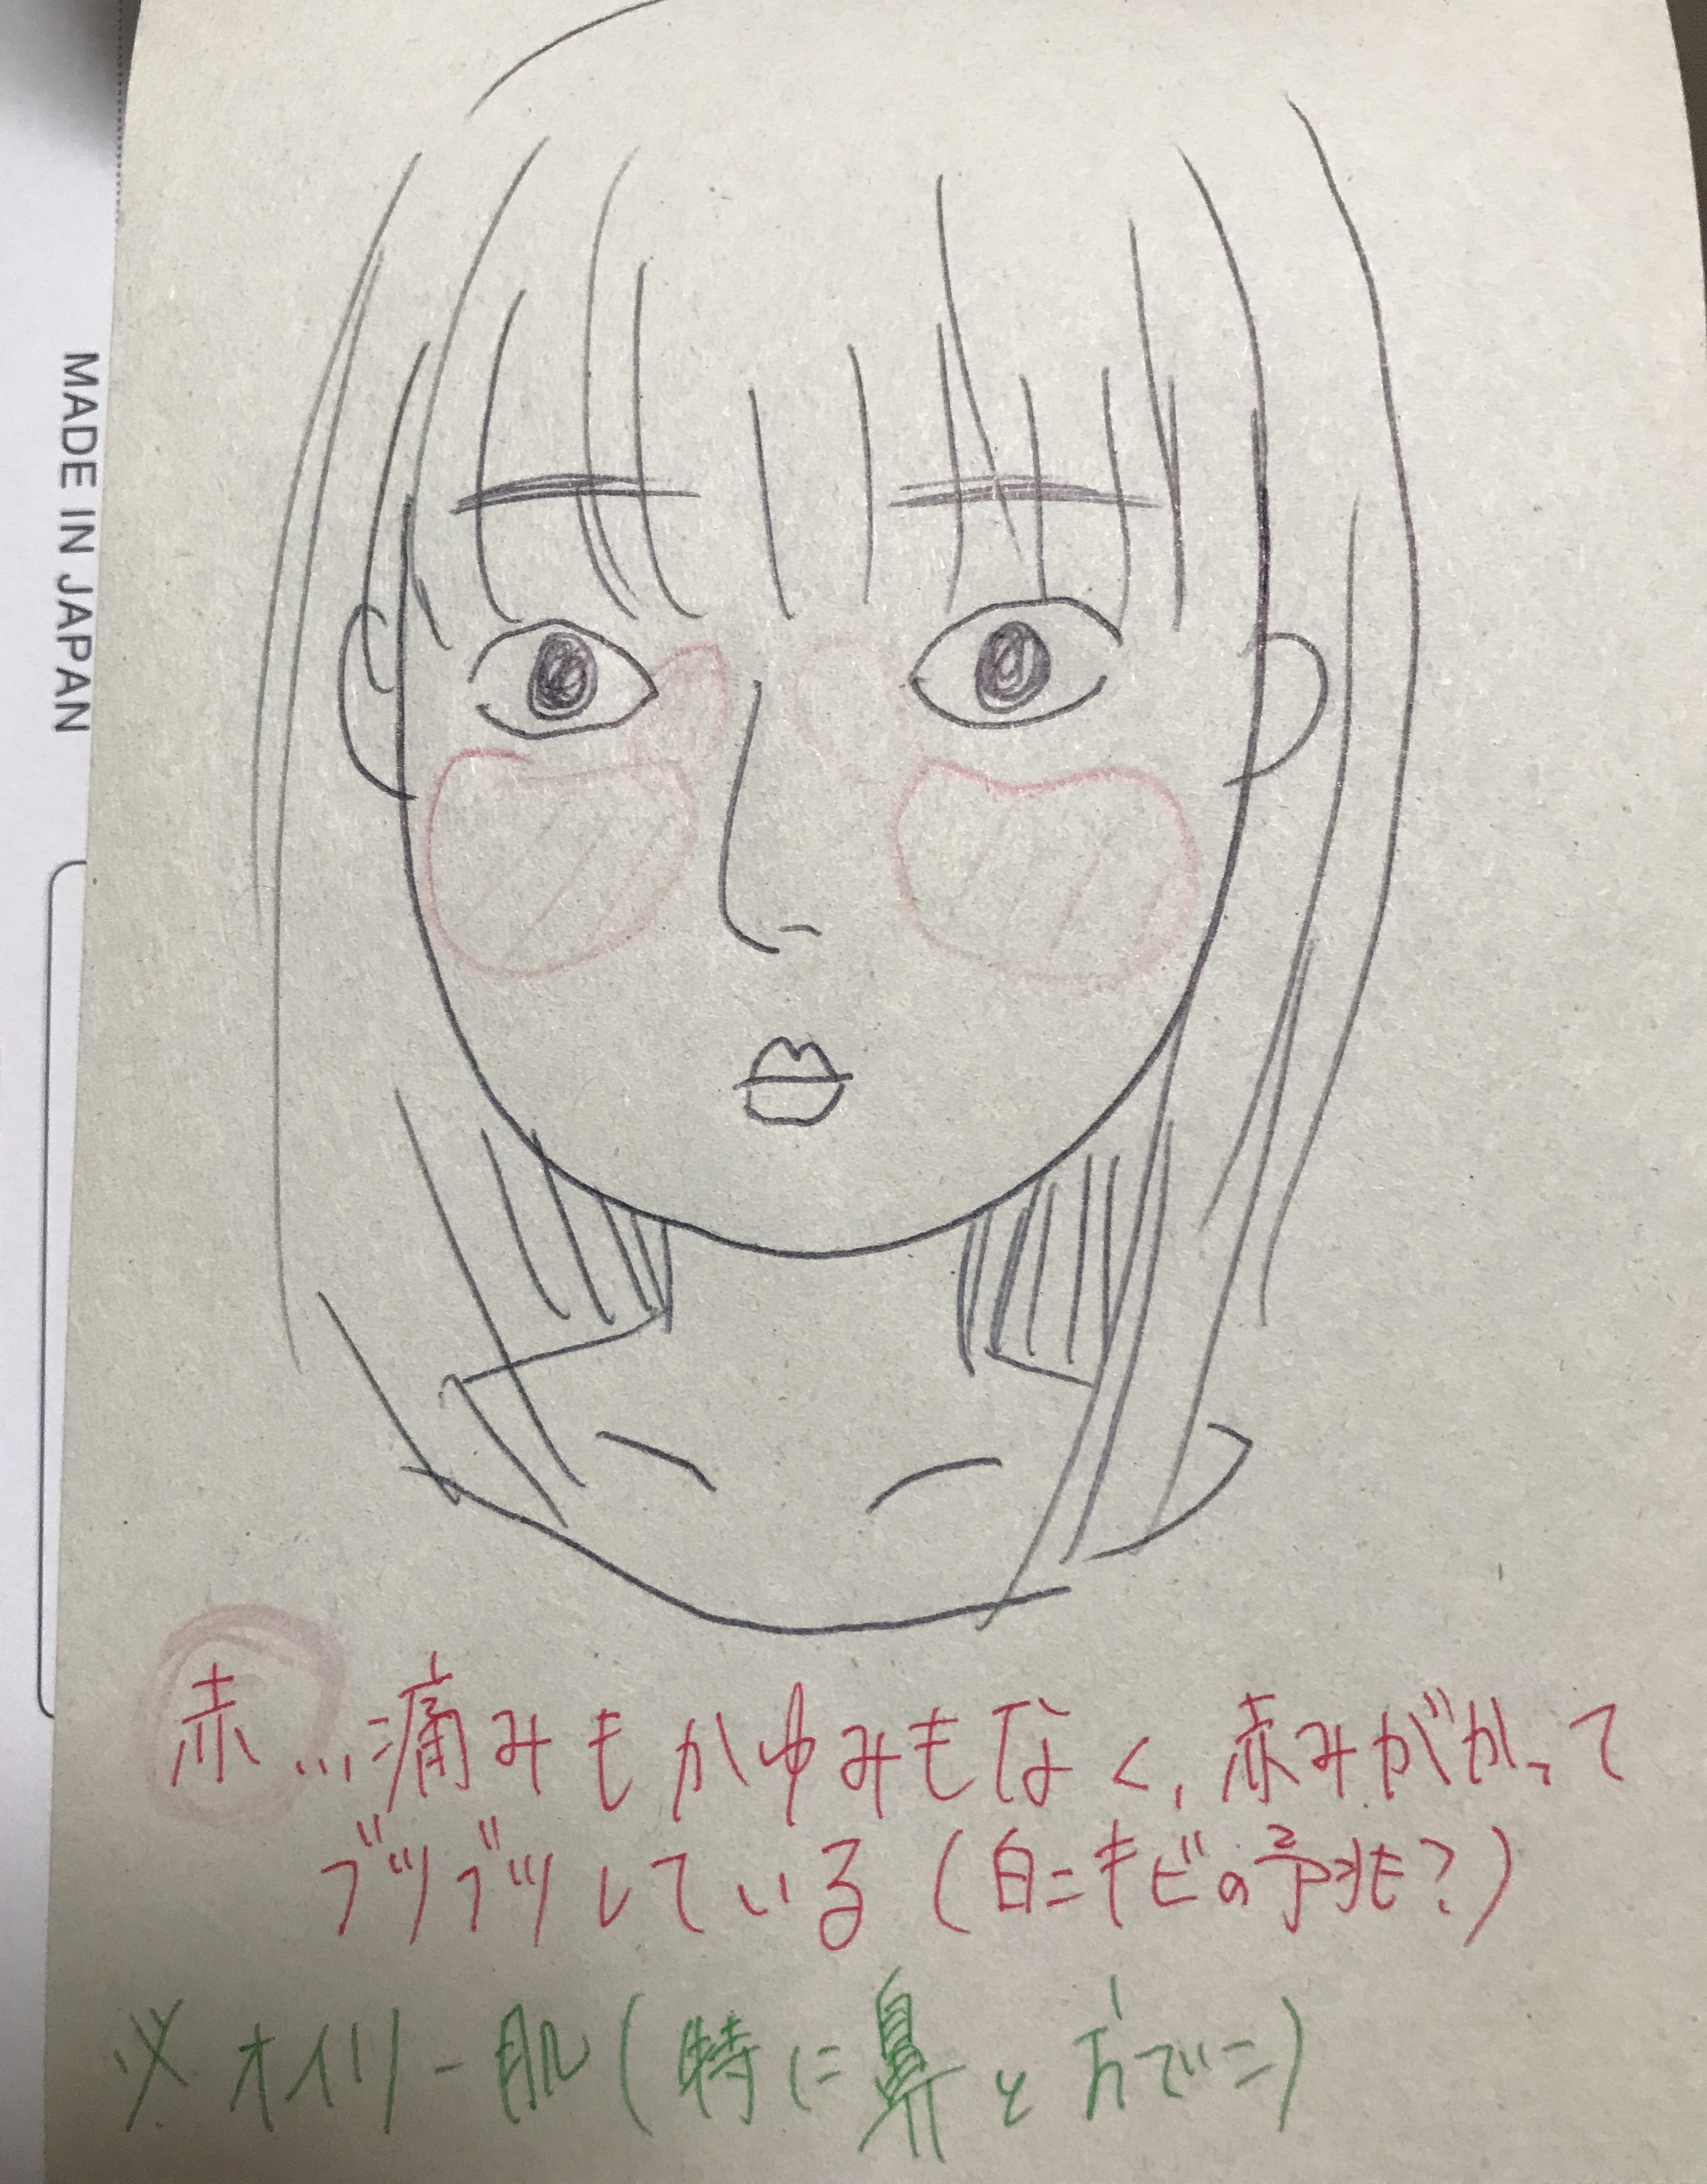 MADE IN JAPAN
赤…痛みもかゆみもなく、赤みがかって
ブツブツしている(白ニキビの予兆?)
※オイリー肌(特に鼻とおでこ)